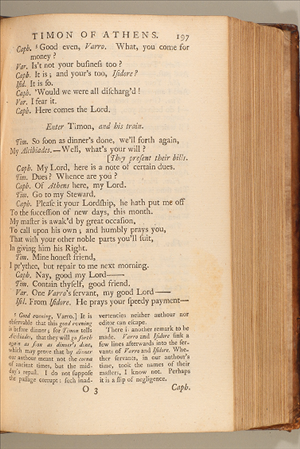 TIMON OF ATHENS. 197
Caph. ¹ Good even, Varro. What, you come for
money?
Var. Is't not your business too?
Caph. It is; and your's too, Isidore?
Isid. It is so.
Caph. 'Would we were all discharg'd!
Var. I fear it.
Caph. Here comes the Lord.
Enter Timon, and his train.
Tim. So soon as dinner's done, we'll forth again,
My Alcibiades.—Well, what's your will?
[They present their bills.
Caph. My Lord, here is a note of certain dues.
Tim. Dues? Whence are you?
Caph. Of Athens here, my Lord.
Tim. Go to my Steward.
Caph. Please it your Lordship, he hath put me off
To the succession of new days, this month.
My master is awak'd by great occasion,
To call upon his own; and humbly prays you,
That with your other noble parts you'll suit,
In giving him his Right.
Tim. Mine honest friend,
I pr'ythee, but repair to me next morning.
Caph. Nay, good my Lord——
Tim. Contain thyself, good friend.
Var. One Varro's servant, my good Lord——
Isid. From Isidore. He prays your speedy payment—
¹ Good evening, Varro.] It is
observable that this good evening
is before dinner; for Timon tells
Alcibiades, that they will go forth
again as soon as dinner's done,
which may prove that by dinner
our authour meant not the cœna
of ancient times, but the mid-
day's repast. I do not suppose
the passage corrupt: such inad-
vertencies neither authour nor
editor can escape.
There is another remark to be
made. Varro and Isidore sink a
few lines afterwards into the ser-
vants of Varro and Isidore. Whe-
ther servants, in our authour's
time, took the names of their
masters, I know not. Perhaps
it is a slip of negligence.
O 3 Caph.